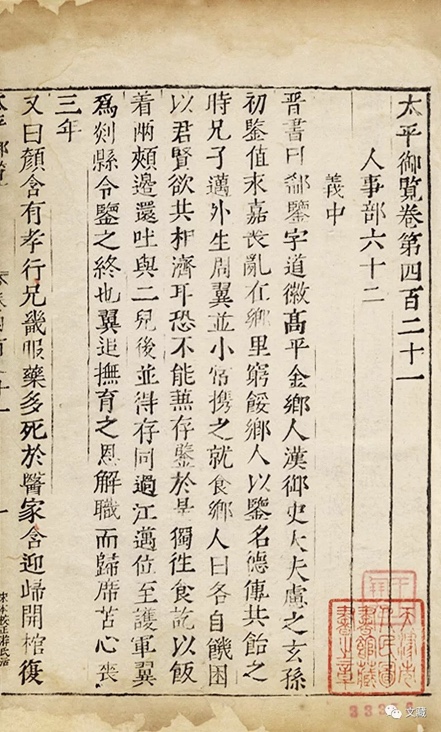 太平御覽卷第四百二十一
人事部六十二
義中
晉書曰郗鑒字道徽高平金鄉人漢御史大夫慮之玄孫
初鑒值永嘉喪亂在鄉里窮餒鄉人以鑒名德傳共飴之
時兄子邁外生周翼並小常携之就食鄉人曰各自饑困
以君賢欲共相濟耳恐不能兼存鑒於是獨往食訖以飯
着兩頰邊還吐與二兒後並得存同過江邁位至護軍翼
為剡縣令鑒之終也翼追撫育之恩解職而歸席苫心喪
三年
又曰顏含有孝行兄畿服藥多死於醫家含迎歸開棺復
太平御覽
一
文藏